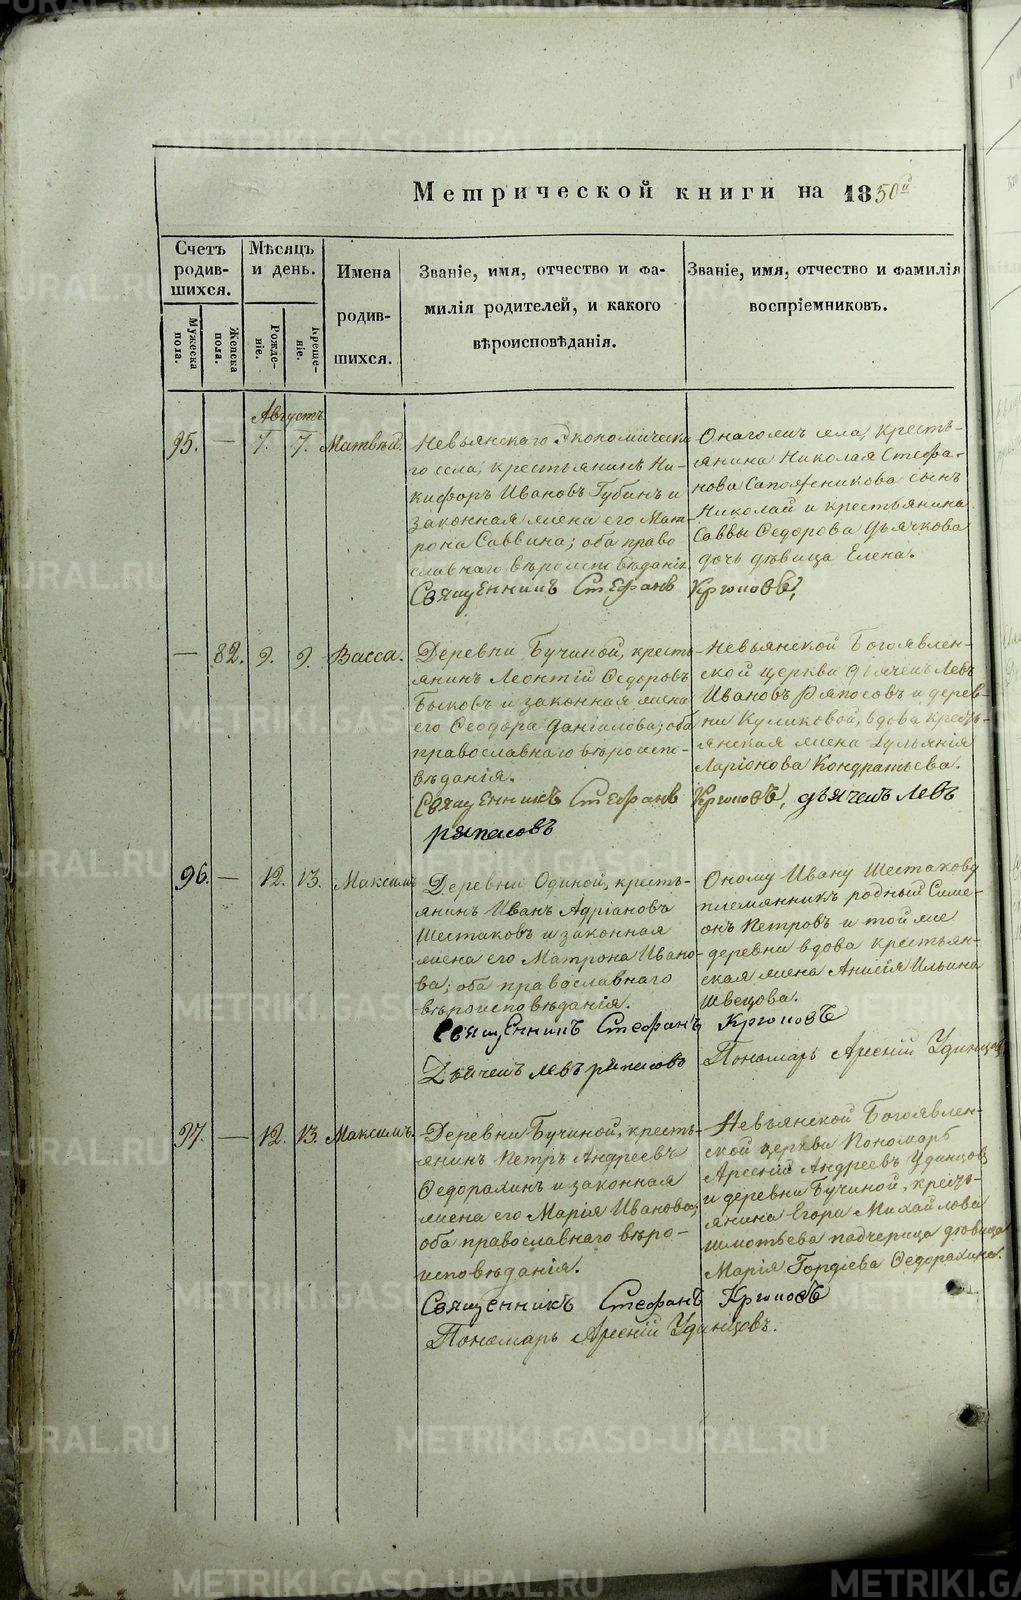 Метрической книги на 1850й
Счетъ родив-шихся.
Мужеска пола.
Женска пола.
Мѣсяцъ и день.
Рожде-ніе.
Креще-ніе.
Имена родив-шихся.
Званіе, имя, отчество и фа-
милія родителей, и какого
вѣроисповѣданія.
Званіе, имя, отчество и фамилія
воспріемниковъ.
Августъ
95. — 7. 7. Матвѣй.
Невьянскаго Экономическа
го села, крестьянинъ Ни-
кифоръ Ивановъ Губинъ и
законная жена его Мат-
рона Саввина; оба право
славнаго вѣроисповѣданія.
Онагожъ села, кресть-
янина Николая Стефа-
нова Сапожникова сынъ
Николай и крестьянина
Саввы Ѳедорова Дьячкова
дочь дѣвица Елена.
Священникъ Стефанъ
— 82. 9. 9. Васса.
Деревни Бучиной, кресть
янинъ Леонтій Ѳедоровъ
Быковъ и законная жена
его Ѳеодора Даніилова; оба
православнаго вѣроиспо-
вѣданія.
Невьянской Богоявлен-
ской церкви дьячекъ Левъ
Ивановъ Ряпосовъ и дерев-
ни Куликовой, вдова кресть-
янская жена Іульянія
Ларіонова Кондратьева.
Священникъ Стефанъ
дьячекъ Левъ
Ряпасовъ
96. — 12. 13. Максимъ
Деревни Одиной, кресть-
янинъ Иванъ Адріановъ
Шестаковъ и законная
жена его Матрона Ивано-
ва; оба православнаго
вѣроисповѣданія.
Оному Ивану Шестакову
племянникъ родный Симе-
онъ Петровъ и той же
деревни вдова крестьян-
ская жена Анисія Ильина
Швецова.
Священникъ Стефанъ
Дьячекъ Левъ Ряпасовъ
Пономарь Арсеній Удинцовъ
97. — 12. 13. Максимъ.
Деревни Бучиной, кресть-
янинъ Петръ Андреевъ
Ѳедорахинъ и законная
жена его Марія Иванова;
оба православнаго вѣро-
исповѣданія.
Невьянской Богоявлен-
ской церкви Пономарь
Арсеній Андреевъ Удинцовъ
и деревни Бучиной, кресть-
янина Егора Михайлова
падчерица дѣвица
Марія Гордіева Ѳедорахина.
Священникъ Стефанъ
Пономарь Арсеній Удинцовъ.
METRIKI.GASO-URAL.RU